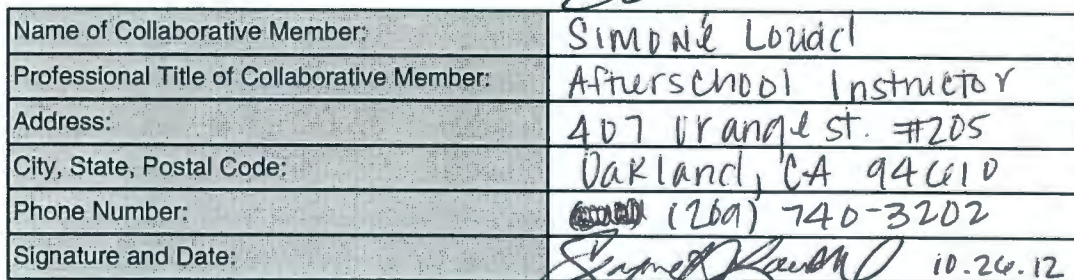 Name of Collaborative Member: Simoné
Professional Title of Collaborative Member: Afterschool Instructor
Address: 407 Orange st. #205
City, State, Postal Code: Oakland, CA 94610
Phone Number: (209) 740-3202
Signature and Date: 10.26.12